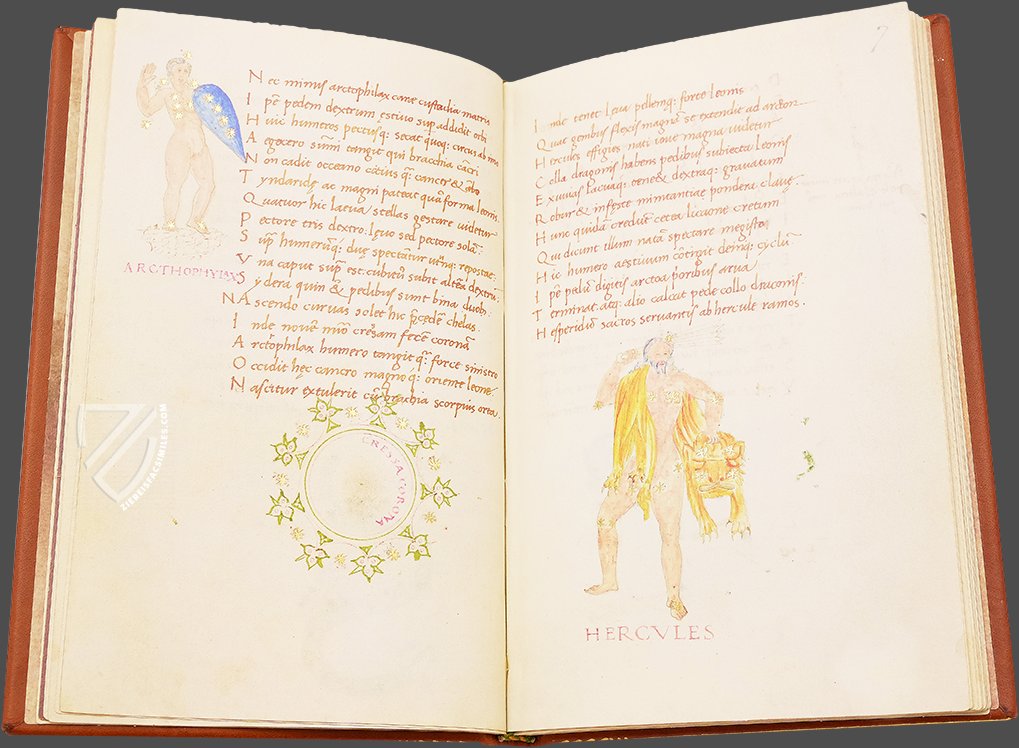 Nec minus arctophilax canę custodia matris
Ipē pedem dextrum estiuo sup addidit orbi
Huic humeros pectusq: secat quoq: circus ab imo
Aegocero sūmū tangit qui bracchia cācri
Non cadit occeano cātius q̄: cancer & abo
Tyndaridę ac magni pateat quā forma leonis
Quatuor hic laeua / stellas gestare uidetur
Pectore tris dextro: lęuo sed pectore solā.
Sup humerūq: duę spectātur utrq: repostae:
Vna caput sup est: cubitū subit altera dextrū.
Sydera quin & pedibus sunt bina duob:
NAscendo curuas solet hic pręcedere chelas.
Inde nouē miro cressam fecere coronā
Arctophilax humero tangit q̄: force sinistro
Occidit hęc cancro magnoq: oriente leone
Nascitur extulerit cū brachia scorpius orta.
ARCTHOPHYLAXS
CRESSA CORONA
7
Inde tenet Leua pellemq: force leonis
Quae genibus flexis magnū se extendit ad arcton
Hercules effigies nati ioue magna uidetur
Cella draconis habens pedibus subiecta leonis
Exuuias lacuaq: tene& dextraq: grauatum
Robur & infestę minitantiae pondera clauę.
Hunc quidā creduē cetea licaone cretum
Qui dicunt illum natā spectare megisto
Hic humero aestiuum cōtigit demq: cyclū
Ipē pediū digitis arctoa ꝑoribus arua
Terminat. atq: alio calcat pede collo draconis.
Hesperidū sacros seruantis ab hercule ramos.
HERCVLES
ZIEREIS FACSIMILES.COM